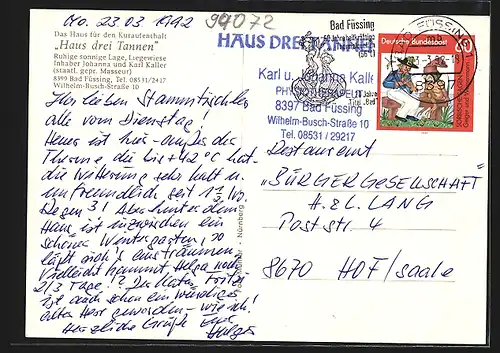 Mo. 23 03 1992
94072
Das Haus für den Kuraufenthalt
„Haus drei Tannen"
Ruhige sonnige Lage, Liegewiese
Inhaber Johanna und Karl Kaller
(staatl. gepr. Masseur)
8399 Bad Füssing, Tel. 08531/2417
Wilhelm-Busch-Straße 10
Ihr lieben Stammtischler
alle vom Dienstag!
Heuer ist hier - außer der
Therme, die bis +42°C hat -
die Witterung sehr kalt u.
unfreundlich seit 1½ Wo.
Regen 3! Aber hinter dem
Haus ist inzwischen ein
schöner Wintergarten, so
läßt sich's
Vielleicht kommt Helga noch
2/3 Tage!? Der Kater Fritz
ist auch schon ein würdiger
alter Herr geworden - wie ich!
Herzliche Grüße Euer
Holger
Nürnberg
Bad Füssing
HAUS DREI TANNEN
Karl u. Johanna Kaller
8397 Bad Füssing
Wilhelm-Busch-Straße 10
Tel. 08531 / 29217
FÜSSING
Deutsche Bundespost
60
Restaurant
„BÜRGERGESELLSCHAFT"
H. & L. LANG
Poststr. 4
8670 HOF/Saale